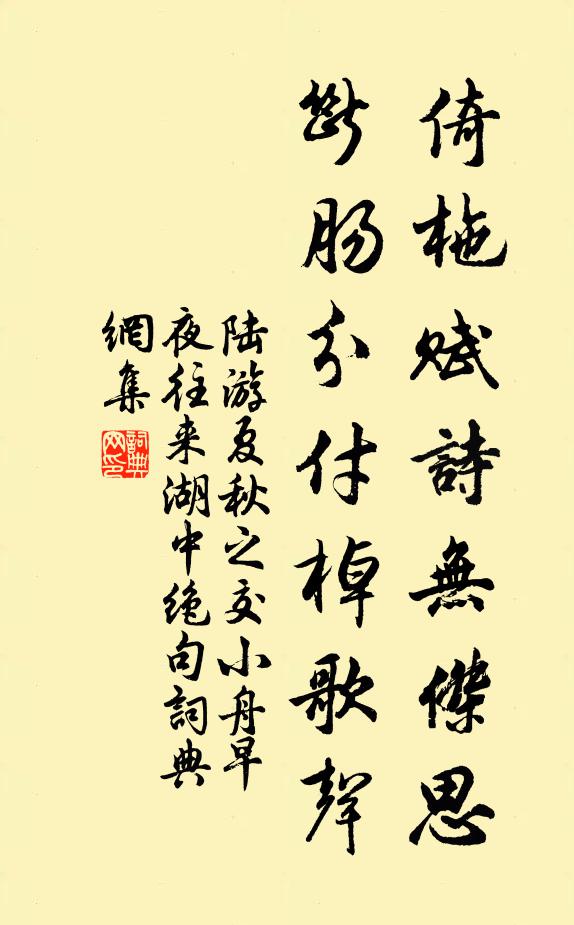 倚柂賦詩無傑思
斷腸分付棹歌聲
陆游夏秋之交小舟早
夜往来湖中绝句詞典
網集
詞典網印